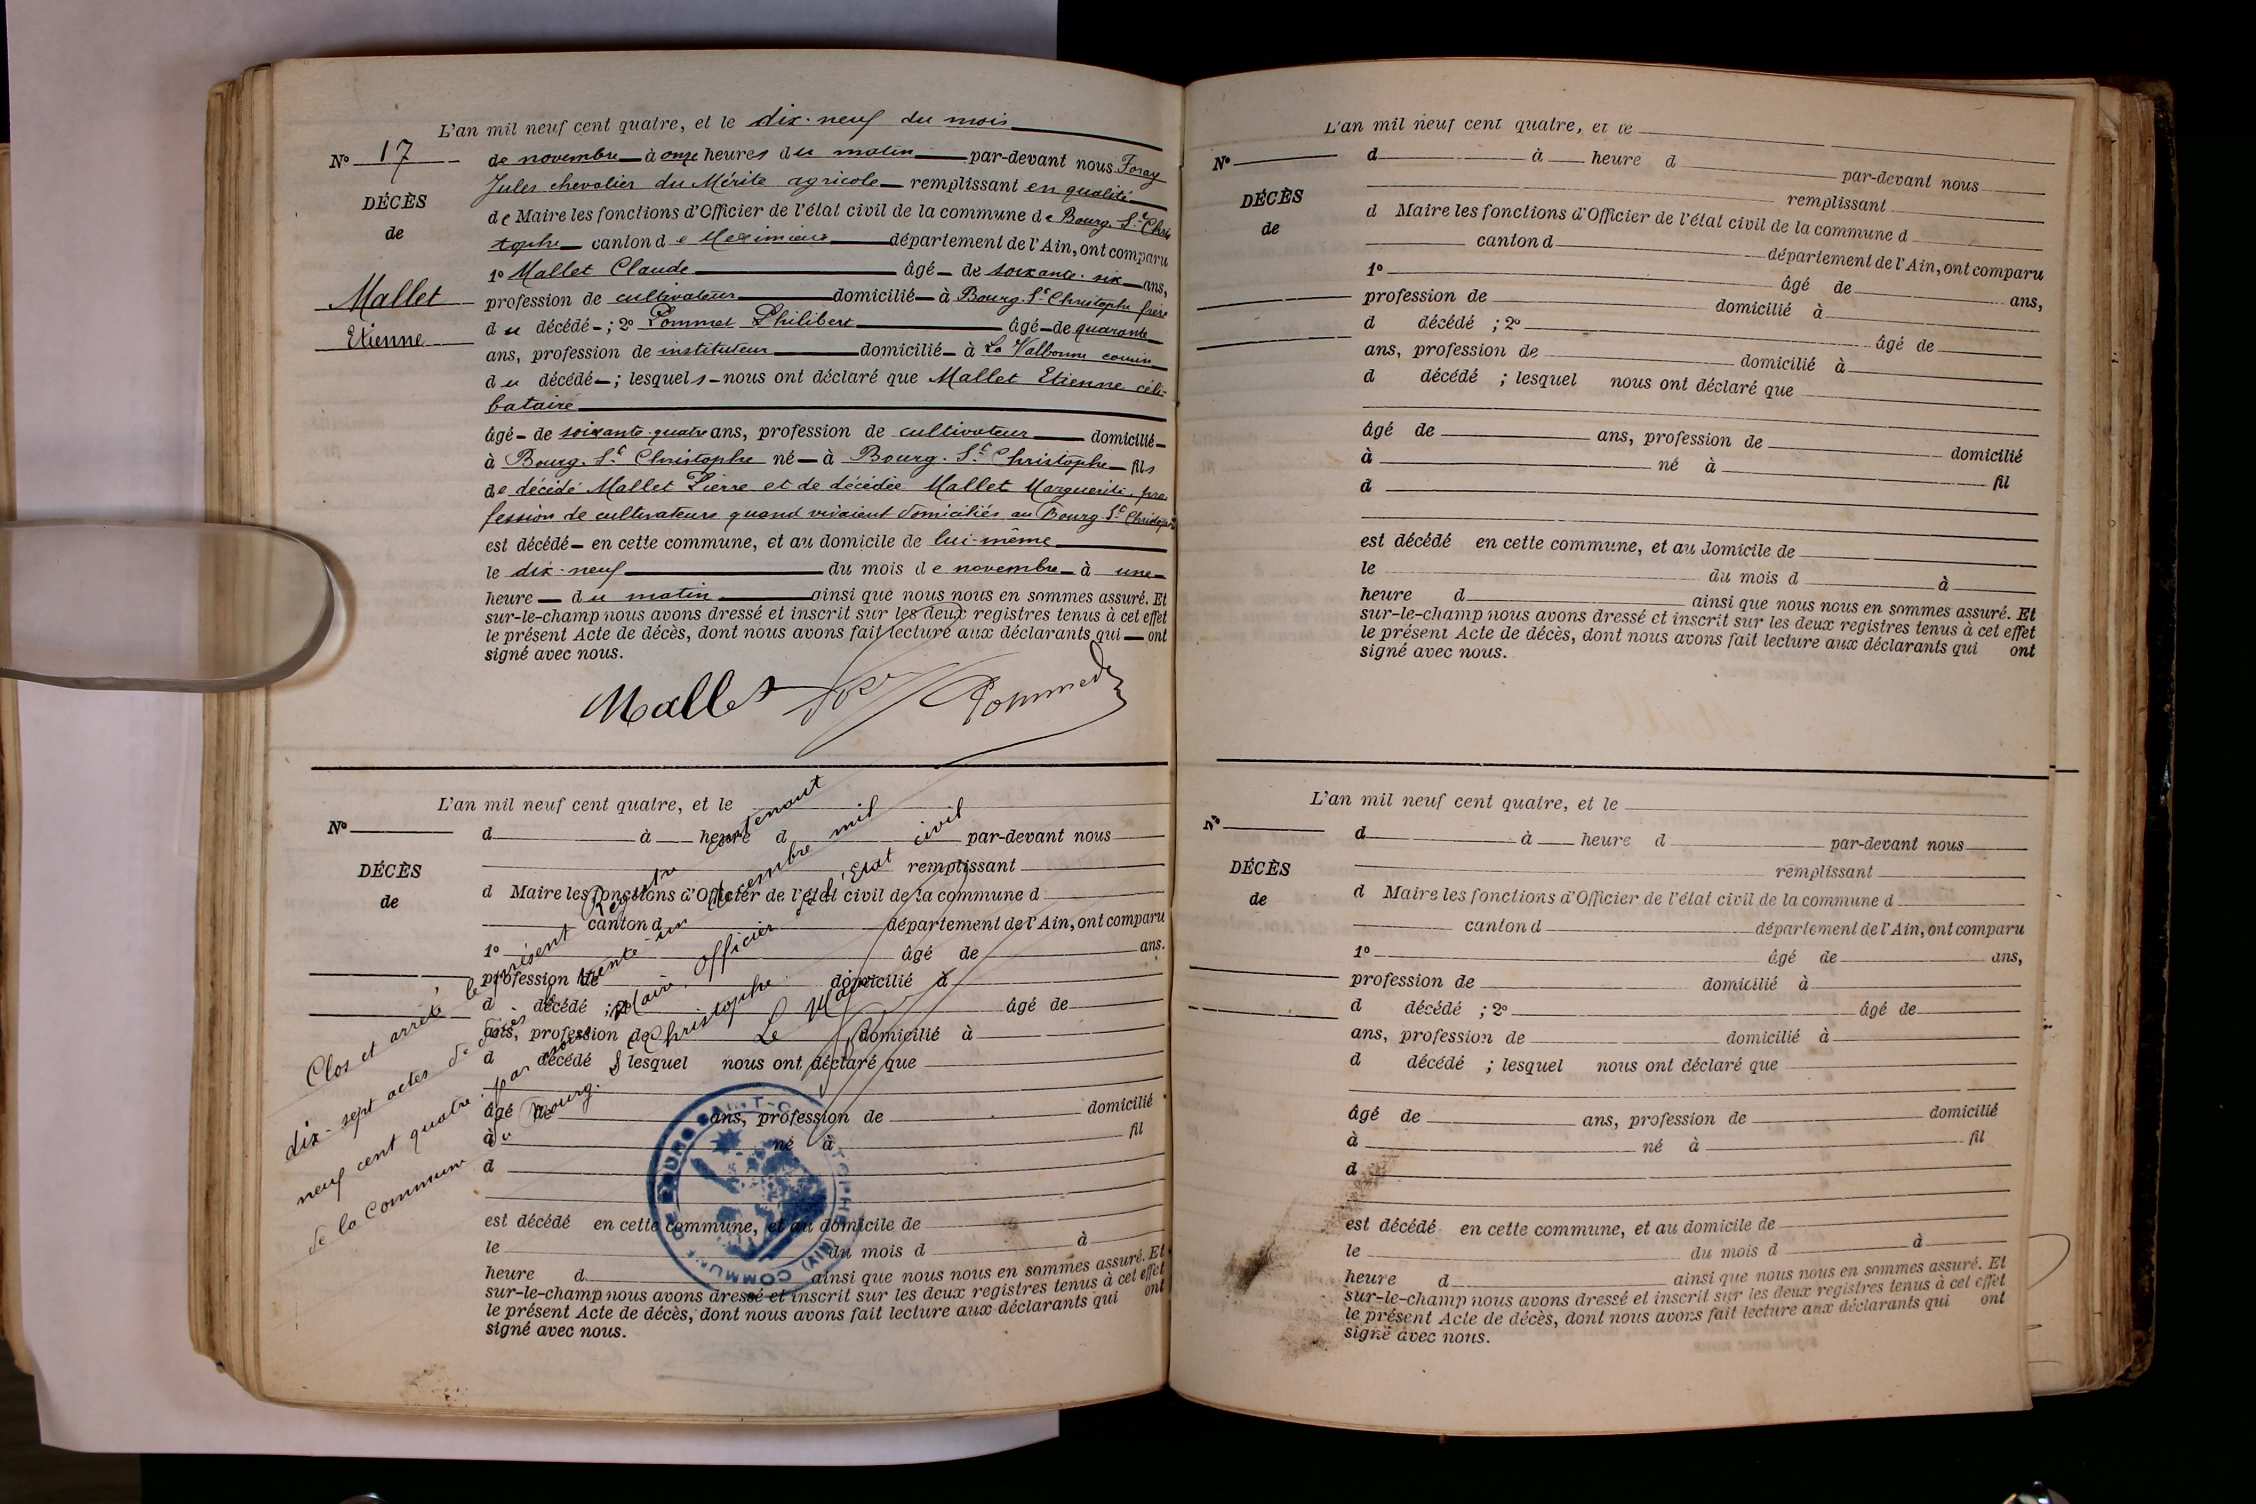 L'an mil neuf cent quatre, et le dix-neuf du mois
N° 17
de novembre à onze heures du matin par-devant nous Foray
Jules chevalier du Mérite agricole remplissant en qualité
DÉCÈS
de Maire les fonctions d'Officier de l'état civil de la commune de Bourg. St Chris
de
tophe canton de Meximieux département de l'Ain, ont comparu
1° Mallet Claude âgé de soixante-six ans,
Mallet
profession de cultivateur domicilié à Bourg. St Christophe frère
du décédé ; 2° Pommet Philibert âgé de quarante
Etienne
ans, profession de instituteur domicilié à La Valbonne cousin
du décédé ; lesquels nous ont déclaré que Mallet Etienne céli-
bataire
âgé de soixante-quatre ans, profession de cultivateur domicilié
à Bourg. St Christophe né à Bourg. St Christophe fils
de décédé Mallet Pierre et de décédée Mallet Marguerite, pro
fession de cultivateurs quand vivaient domiciliés au Bourg. St Christophe
est décédé en cette commune, et au domicile de lui-même
le dix-neuf du mois de novembre à une
heure du matin ainsi que nous nous en sommes assuré. Et
sur-le-champ nous avons dressé et inscrit sur les deux registres tenus à cet effet
le présent Acte de décès, dont nous avons fait lecture aux déclarants qui ont
signé avec nous.
Mallet Pommet
L'an mil neuf cent quatre, et le
N°
d à heure d par-devant nous
remplissant
DÉCÈS
d Maire les fonctions d'Officier de l'état civil de la commune d
de
canton d département de l'Ain, ont comparu
1° âgé de ans.
profession de domicilié à
d décédé ; 2° âgé de
ans, profession de domicilié à
d décédé ; lesquel nous ont déclaré que
âgé de ans, profession de domicilié
à né à fil
d
est décédé en cette commune, et au domicile de
le du mois d à
heure d ainsi que nous nous en sommes assuré. Et
sur-le-champ nous avons dressé et inscrit sur les deux registres tenus à cet effet
le présent Acte de décès, dont nous avons fait lecture aux déclarants qui ont
signé avec nous.
Clos et arrêté le présent Registre contenant
dix-sept actes de décès le trente-un décembre mil
neuf cent quatre, par nous, Maire, officier de l'Etat civil
de la Commune du Bourg. St Christophe
Le Maire
L'an mil neuf cent quatre, et le
N°
d à heure d par-devant nous
remplissant
DÉCÈS
d Maire les fonctions d'Officier de l'état civil de la commune d
de
canton d département de l'Ain, ont comparu
1° âgé de ans,
profession de domicilié à
d décédé ; 2° âgé de
ans, profession de domicilié à
d décédé ; lesquel nous ont déclaré que
âgé de ans, profession de domicilié
à né à fil
d
est décédé en cette commune, et au domicile de
le du mois d à
heure d ainsi que nous nous en sommes assuré. Et
sur-le-champ nous avons dressé et inscrit sur les deux registres tenus à cet effet
le présent Acte de décès, dont nous avons fait lecture aux déclarants qui ont
signé avec nous.
L'an mil neuf cent quatre, et le
N°
d à heure d par-devant nous
remplissant
DÉCÈS
d Maire les fonctions d'Officier de l'état civil de la commune d
de
canton d département de l'Ain, ont comparu
1° âgé de ans,
profession de domicilié à
d décédé ; 2° âgé de
ans, profession de domicilié à
d décédé ; lesquel nous ont déclaré que
âgé de ans, profession de domicilié
à né à fil
d
est décédé en cette commune, et au domicile de
le du mois d à
heure d ainsi que nous nous en sommes assuré. Et
sur-le-champ nous avons dressé et inscrit sur les deux registres tenus à cet effet
le présent Acte de décès, dont nous avons fait lecture aux déclarants qui ont
signé avec nous.